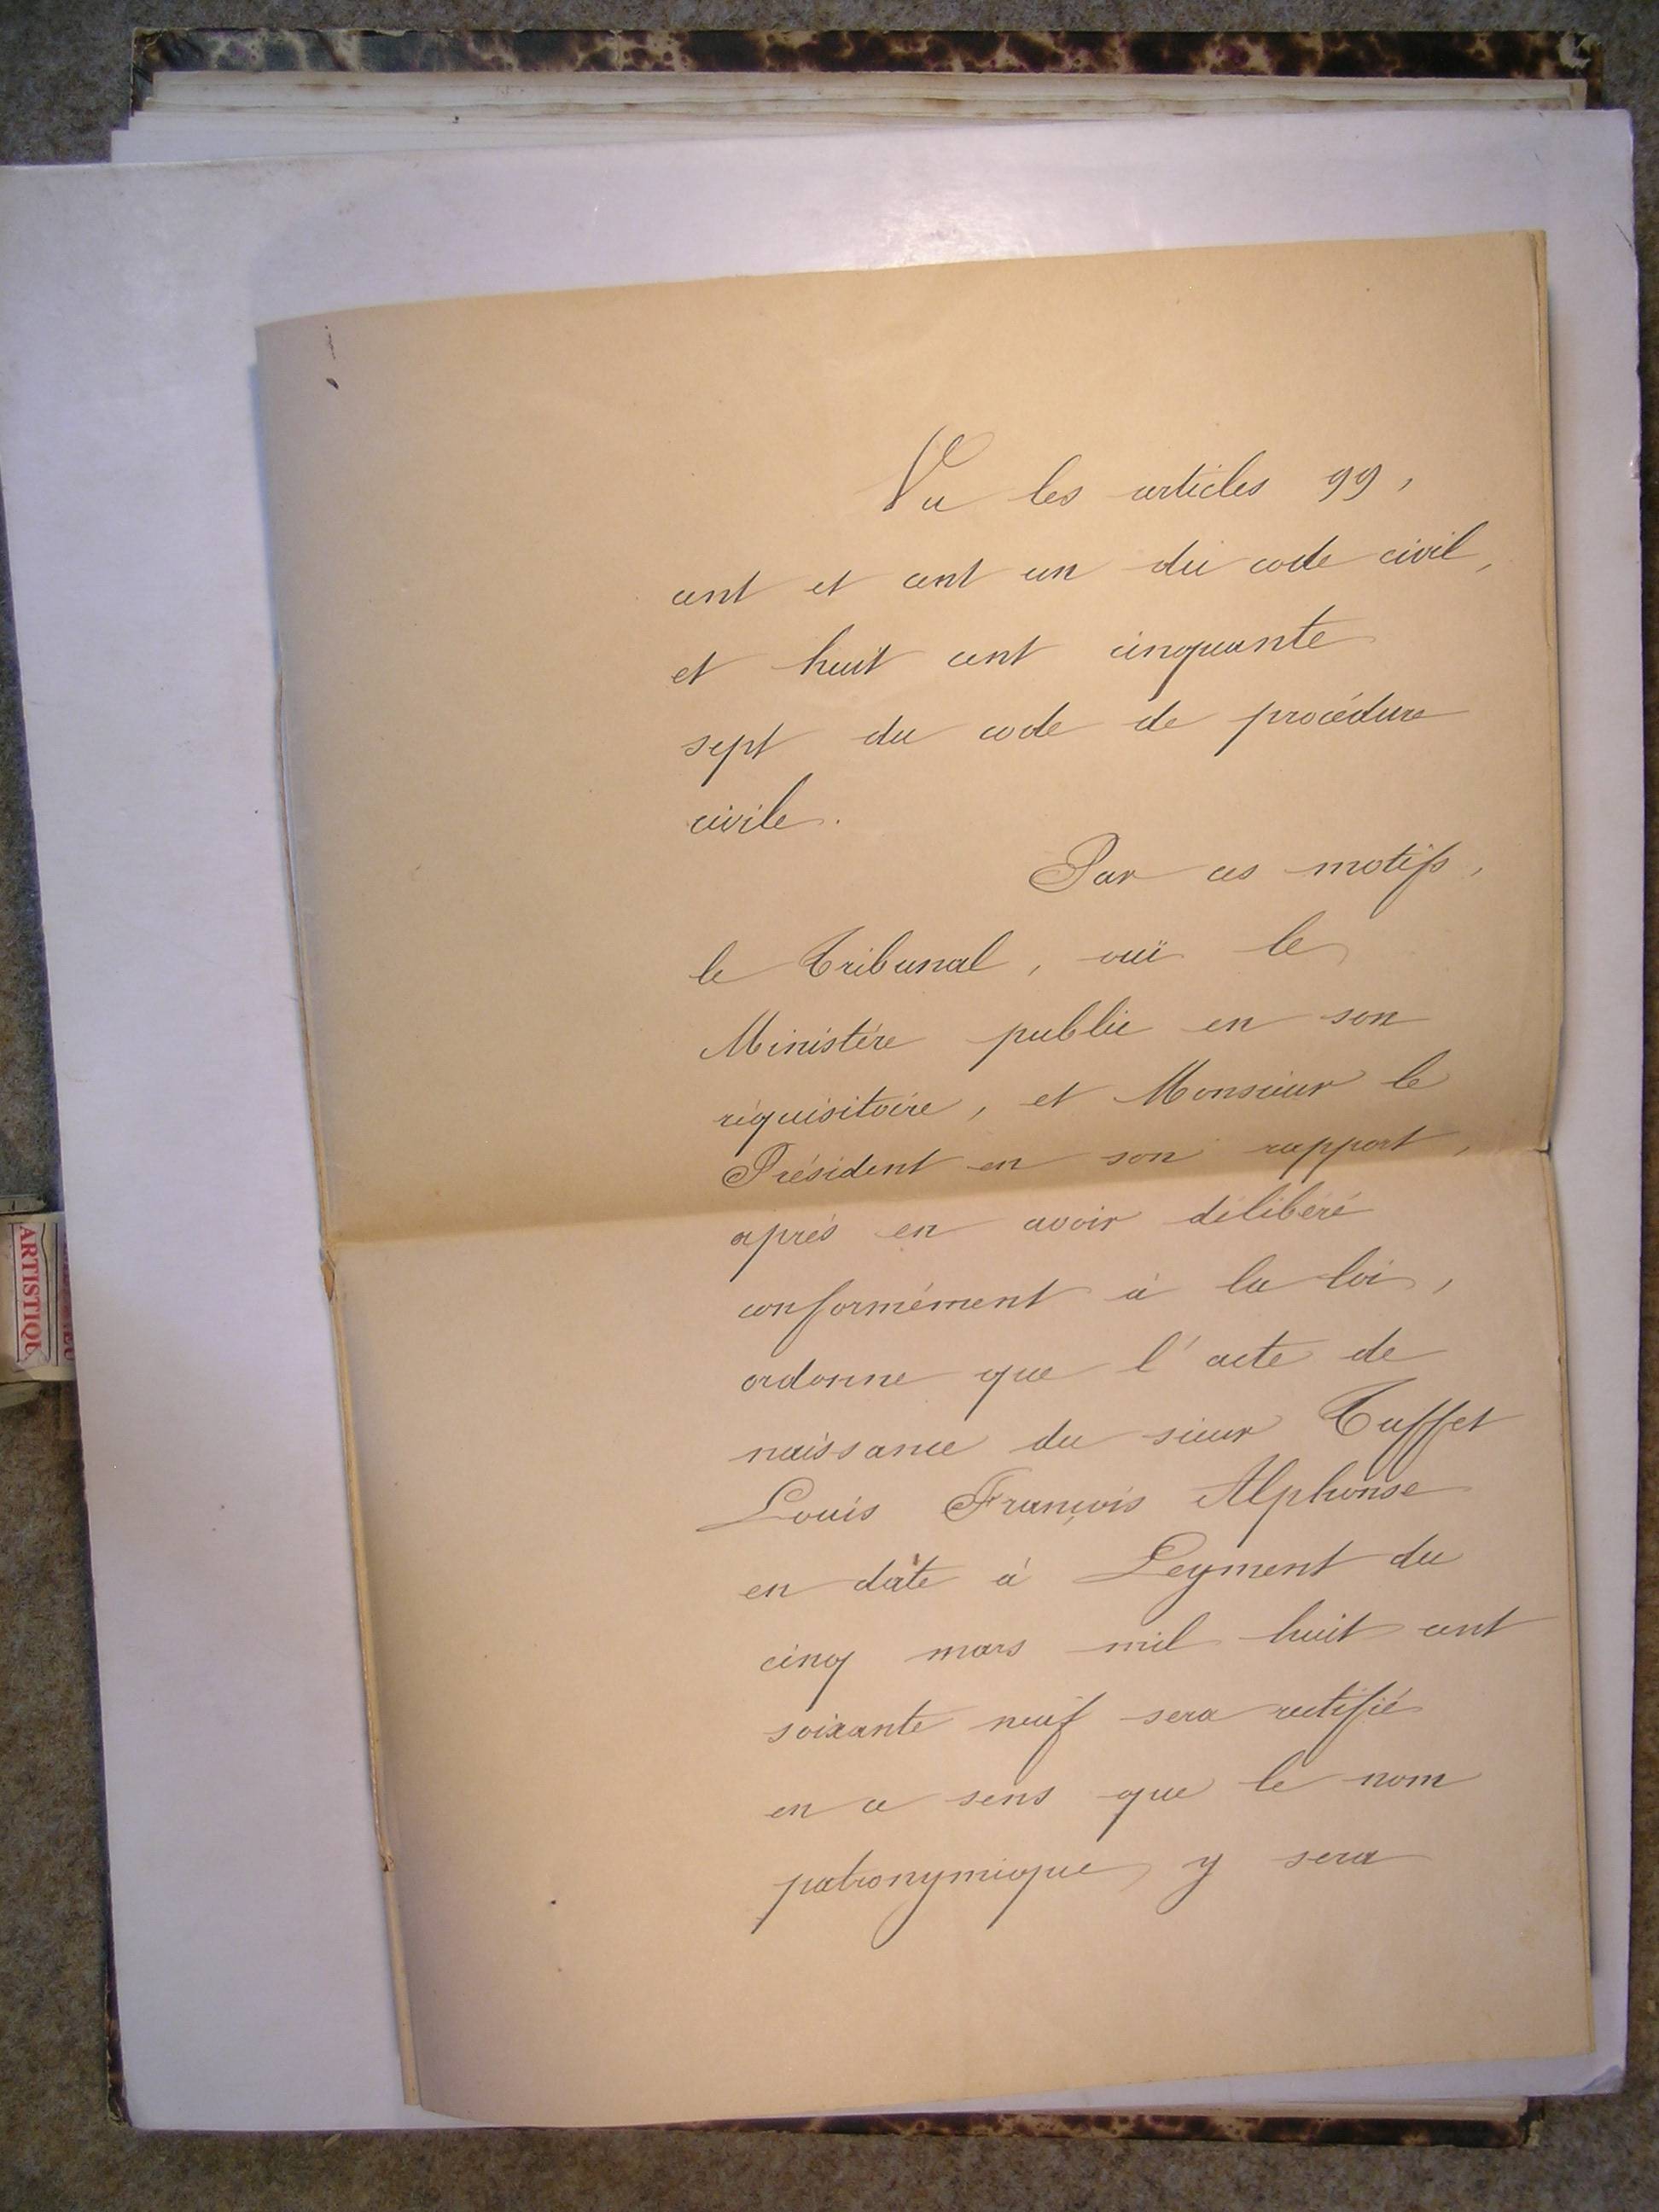 Vu les articles 99,
cent et cent un du code civil,
et huit cent cinquante
sept du code de procédure
civile.
Par ces motifs,
le Tribunal, ouï le
Ministère public en son
réquisitoire, et Monsieur le
Président en son rapport,
après en avoir délibéré
conformément à la loi,
ordonne que l'acte de
naissance du sieur Tuffet
Louis François Alphonse
en date à Leyment du
cinq mars mil huit cent
soixante neuf sera rectifié
en ce sens que le nom
patronymique y sera
ARTISTIQU